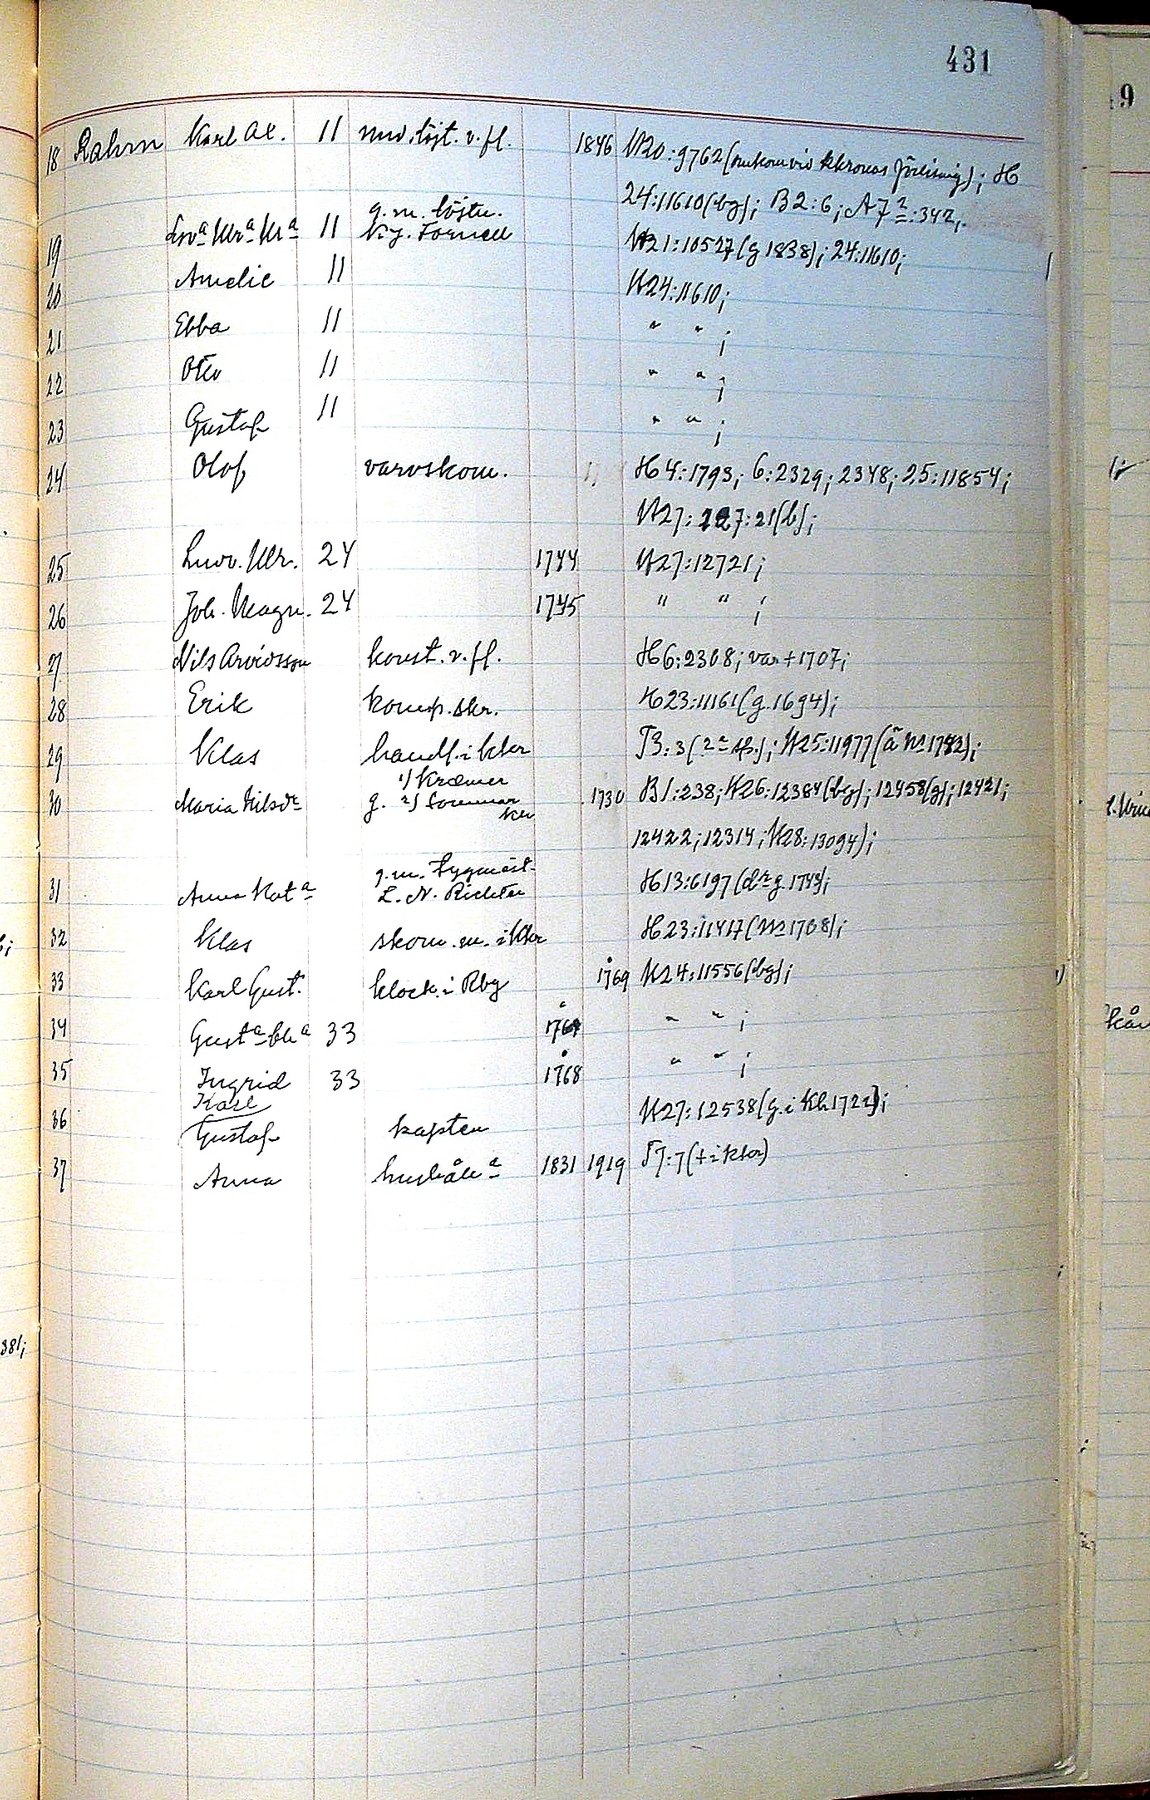 431
18 Rahm Karl Al. 11 und.löjt. v. fl. 1846 N20:9762 (omkom vid kkronas förlisnig); H
24:11610(bg); B2:6; A7²:342;
g. m. löjtn.
19 Lov.ª Ulr.ª Kr.ª 11 K. J. Fornell N21:10527(g 1838); 24:11610;
20 Amelie 11 N24:11610;
21 Ebba 11 " " ;
22 Otto 11 " " ;
23 Gustaf 11 " " ;
24 Olof varvskom. H4:1793; 6:2329; 2348; 25:11854;
N27: 127:21(b);
25 Ludv. Ulr. 24 1744 N27:12721;
26 Joh. Magn. 24 1745 " " ;
27 Nils Arvidsson konst. v. fl. H6:2308; var + 1707;
28 Erik komp. skr. H23:11161(g. 1694);
29 Klas handl. i kkr T3:3 (2ª sp.); N25:11977 (ä m 1742);
1) Kræmer
30 Maria Nilsdr g. 2) 1730 B1:238; N26:12384(bg); 12458(g); 12421;
12422; 12314; N28:13094);
g. m. tygmäst.
31 Anna Kat.ª L. N. Richter H13:6197 (dr g. 1743);
32 Klas skom. m. i kkr H23:11417 (m 1708);
33 Karl Gust. klock. i Rbg 1769 N24:11556(bg);
34 Gust.ª 33 " " ;
35 Ingrid 33 1768 " " ;
Karl
36 Gustaf kapten N27:12538 (g. i Kh 1722);
37 Anna hushåll.ª 1831 1919 T7:7 (+ i kkr)
381;
9